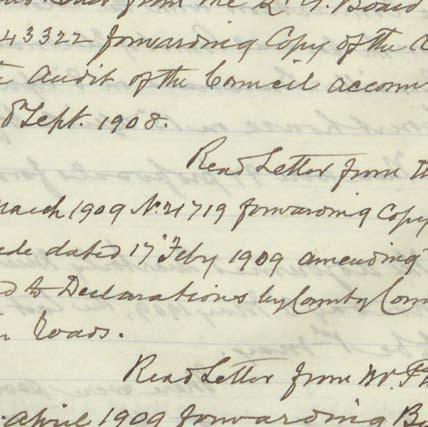 from the L. G. Board
43322 forwarding Copy of the
Audit of the Council accoun
Sept. 1908.
Read Letter from th
march 1909 No. 21719 forwarding Copy
dated 17th Feby 1909 amending
to Declarations by County Coun
Roads.
Read Letter from Mr.
april 1909 forwarding